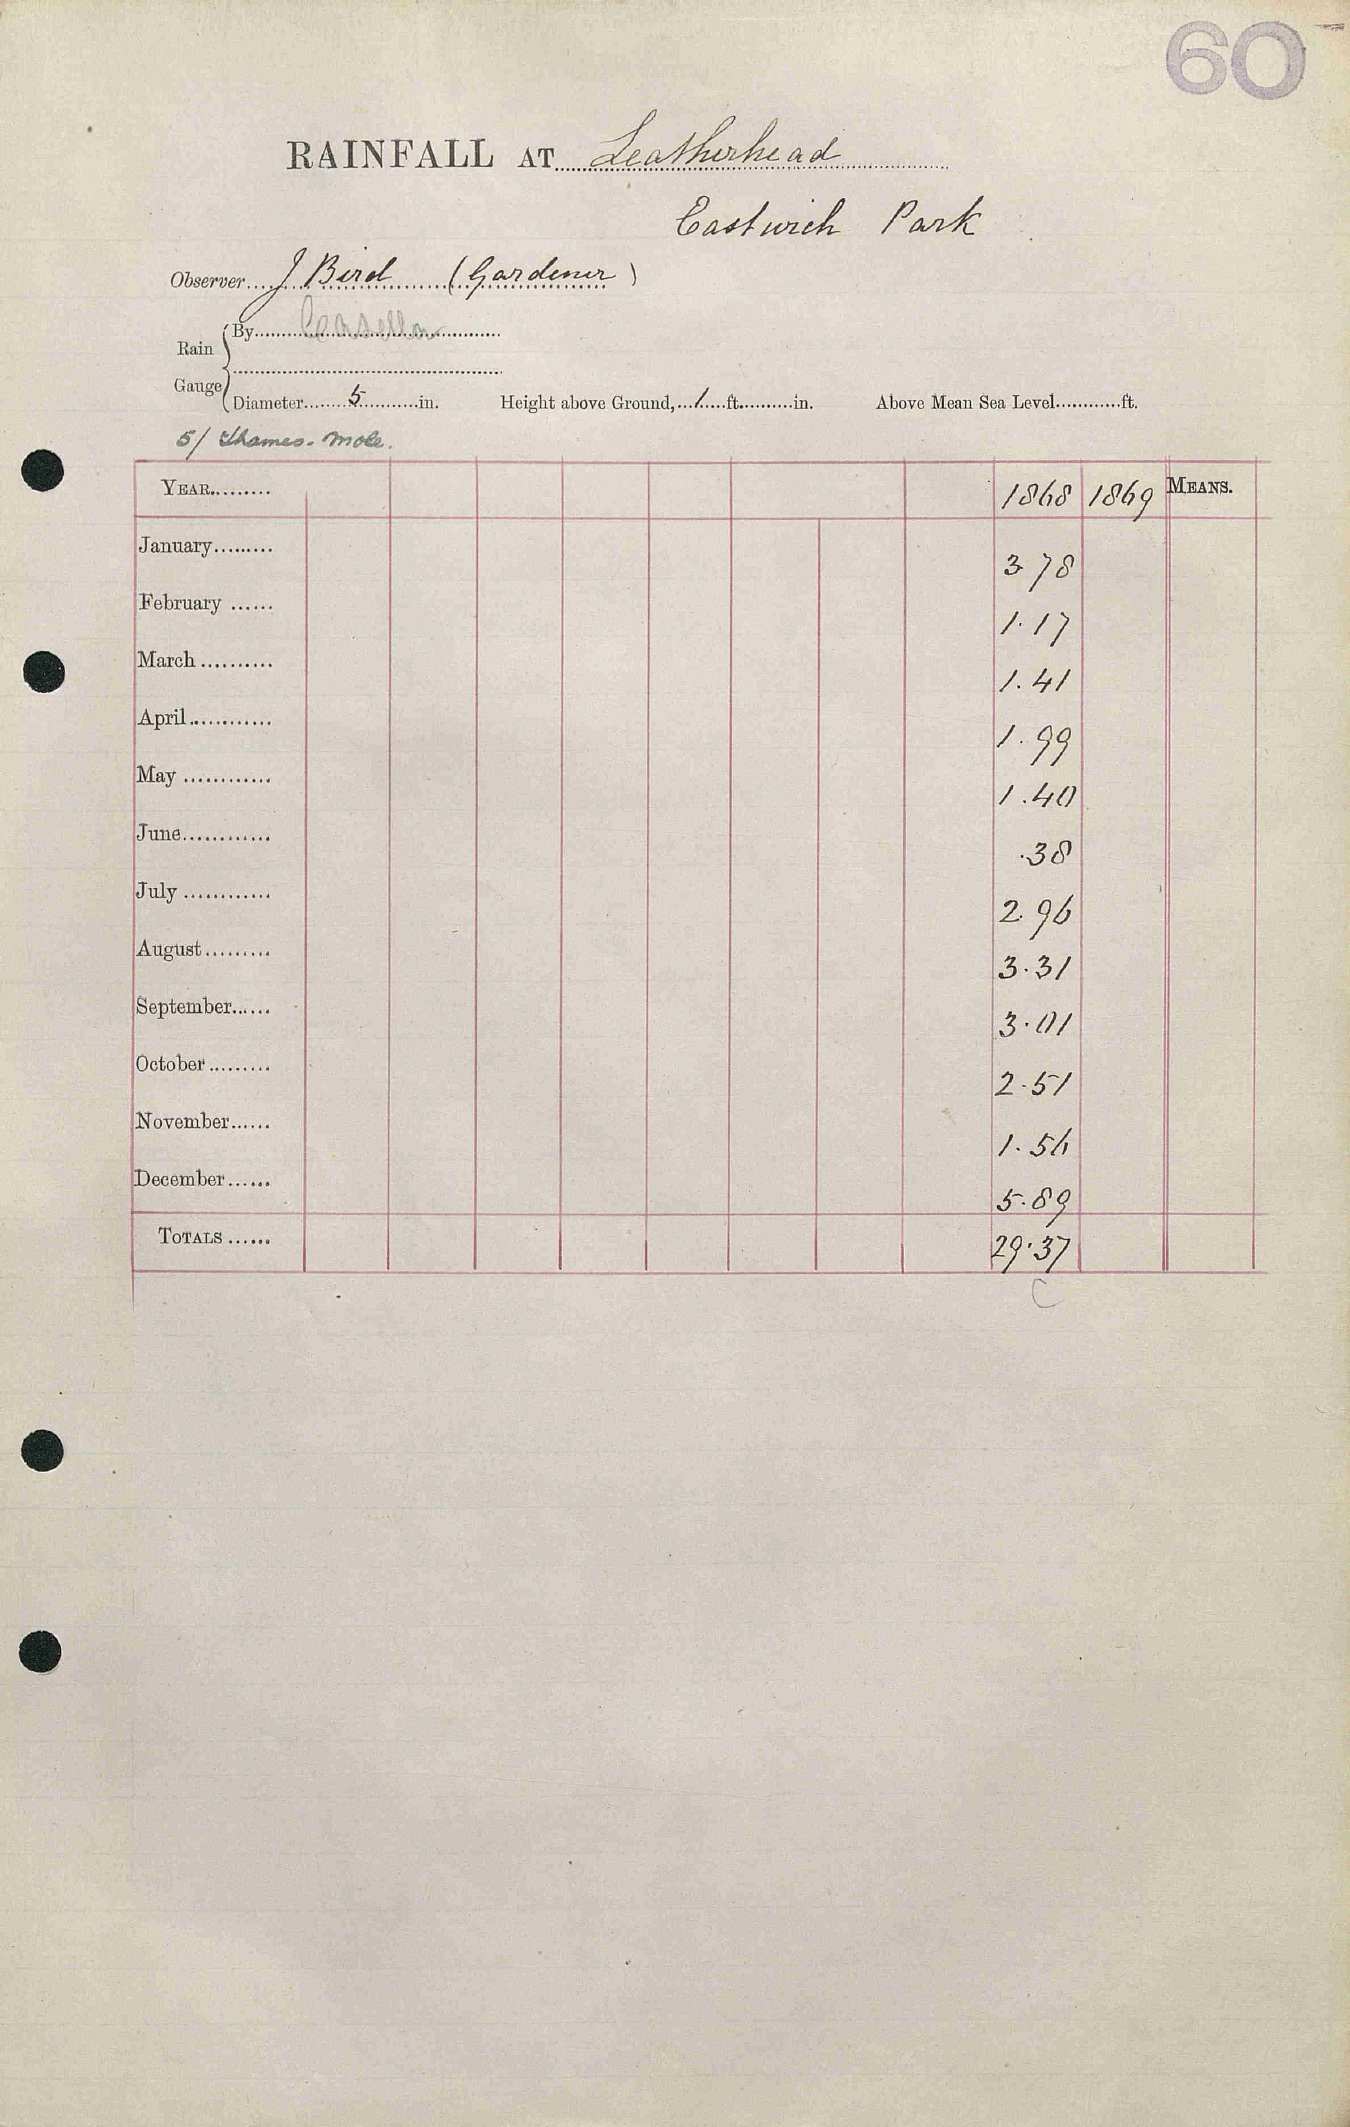 60
RAINFALL AT Leatherhead
Eastwich Park
Observer J Bird (Gardener)
Rain Gauge
By Casella
Diameter 5 in. Height above Ground, 1 ft. in. Above Mean Sea Level ft.
5/ Thames-Mole.
YEAR 1868 1869 MEANS.
January 3.78
February 1.17
March 1.41
April 1.99
May 1.40
June .38
July 2.96
August 3.31
September 3.01
October 2.51
November 1.56
December 5.89
TOTALS 29.37
C